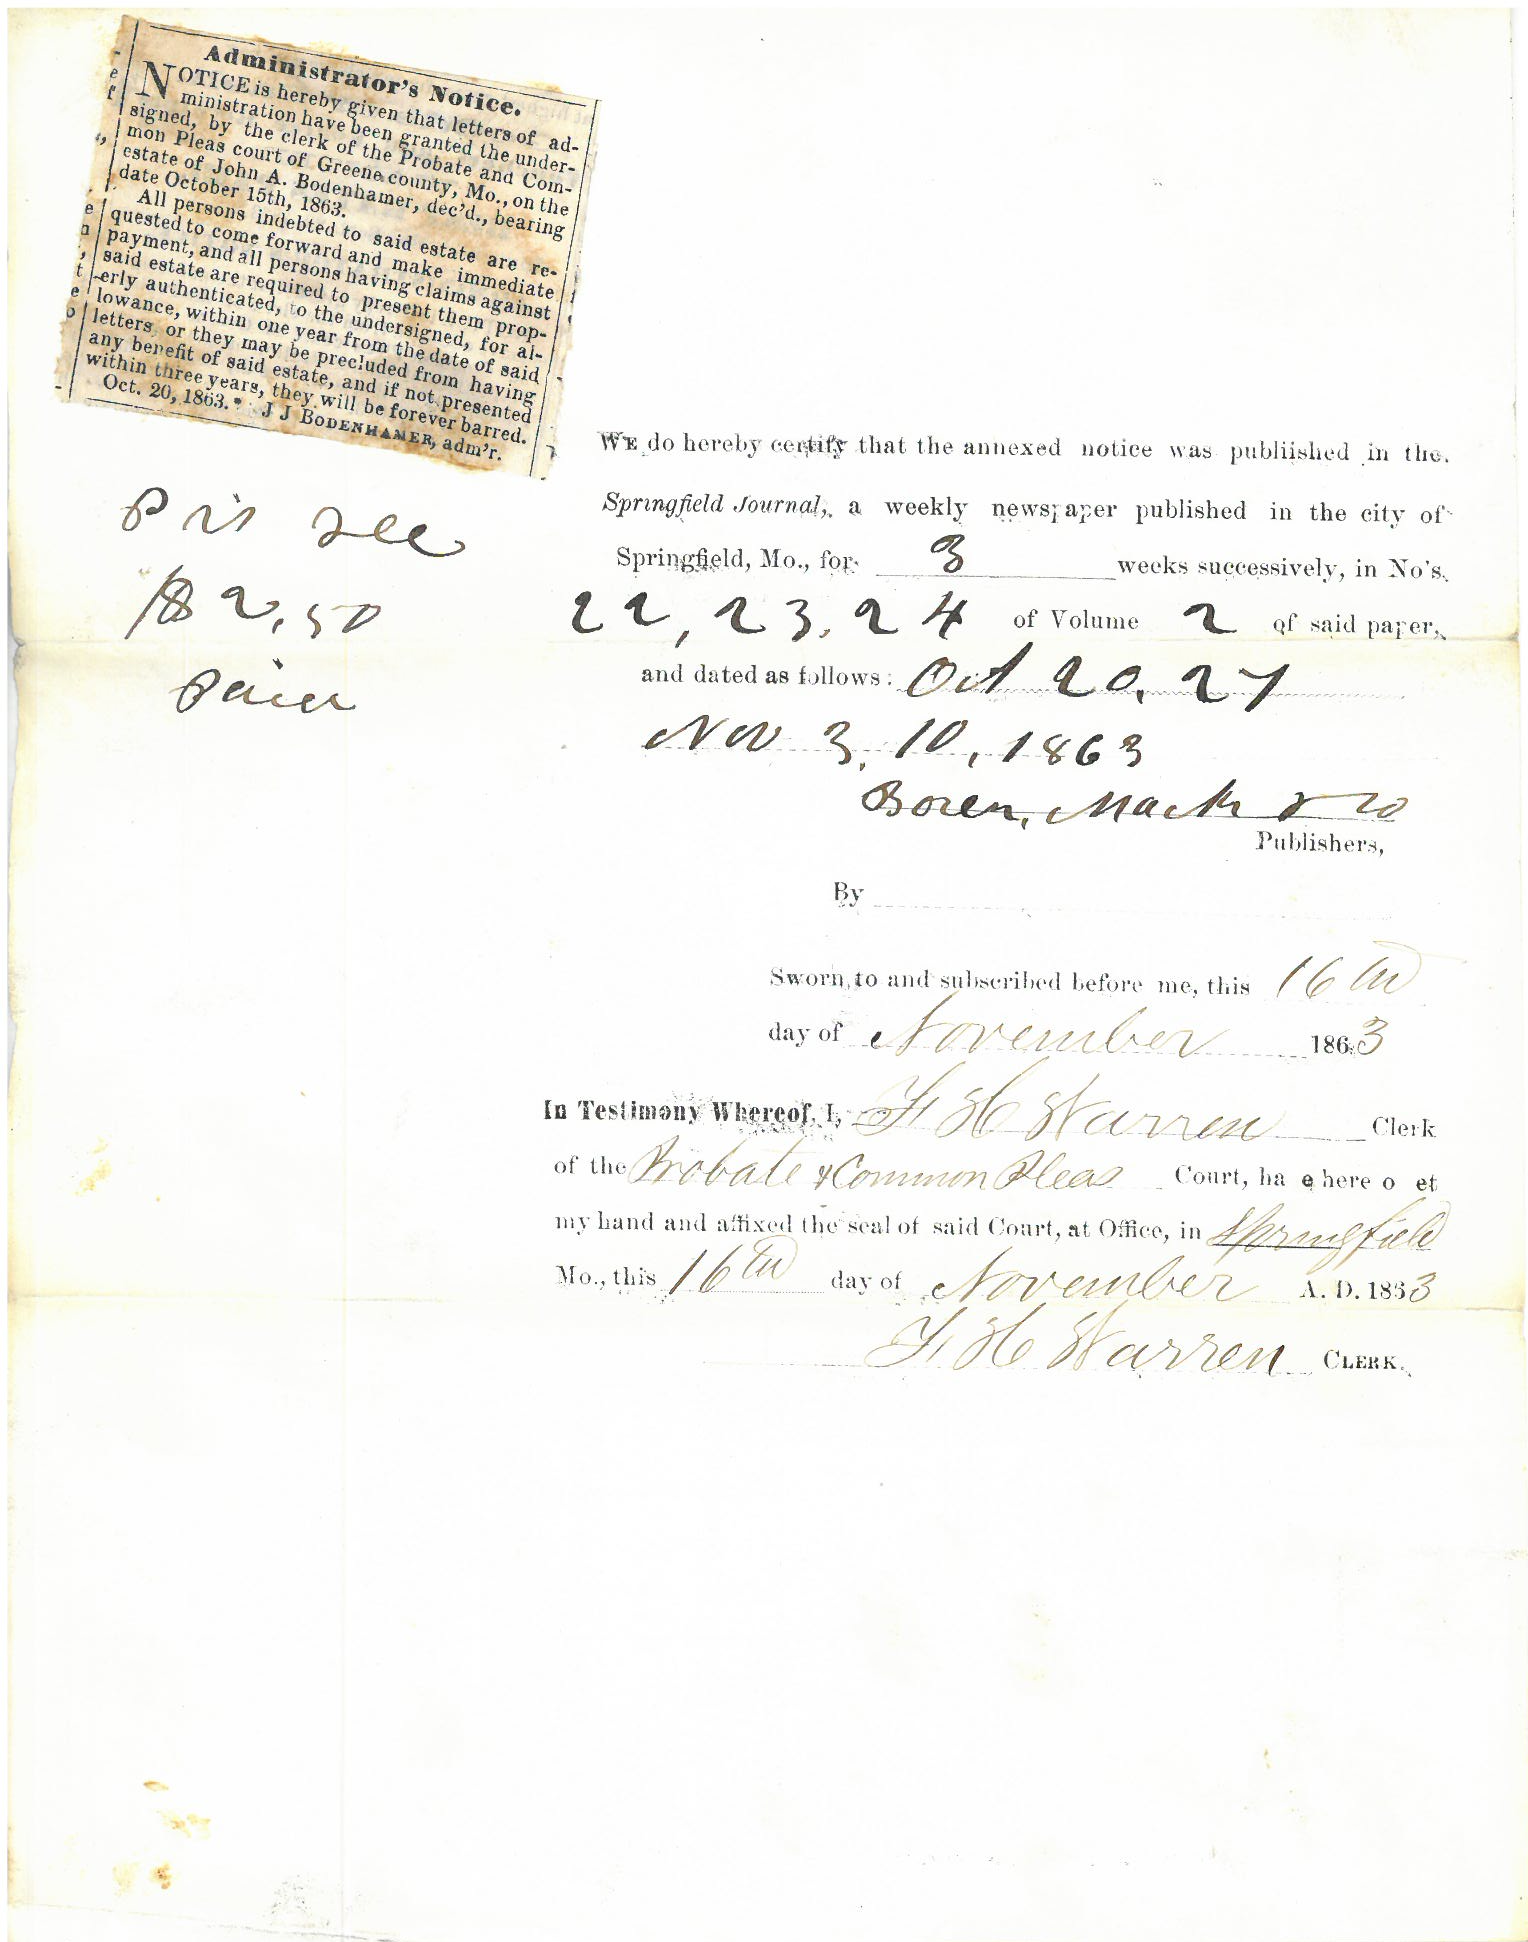 Administrator's Notice.
NOTICE is hereby given that letters of ad-
ministration have been granted the under-
signed, by the clerk of the Probate and Com-
mon Pleas court of Greene county, Mo., on the
estate of John A. Bodenhamer, dec'd., bearing
date October 15th, 1863.
All persons indebted to said estate are re-
quested to come forward and make immediate
payment, and all persons having claims against
said estate are required to present them prop-
erly authenticated, to the undersigned, for al-
lowance, within one year from the date of said
letters, or they may be precluded from having
any benefit of said estate, and if not presented
within three years, they will be forever barred.
Oct. 20, 1863.* J J BODENHAMER, adm'r.
Fee
$2,50
Paid
WE do hereby certify that the annexed notice was publiished in the
Springfield Journal, a weekly newspaper published in the city of
Springfield, Mo., for 3 weeks successively, in No's.
22, 23, 24 of Volume 2 of said paper,
and dated as follows: Oct 20, 27
Nov 3, 10, 1863
Boren, Mack & Co
Publishers,
By
Sworn to and subscribed before me, this 16th
day of November 1863
In Testimony Whereof, I, F H Warren Clerk
of the Probate & Common Pleas Court, ha e here o et
my hand and affixed the seal of said Court, at Office, in Springfield
Mo., this 16th day of November A. D. 1863
F H Warren CLERK.